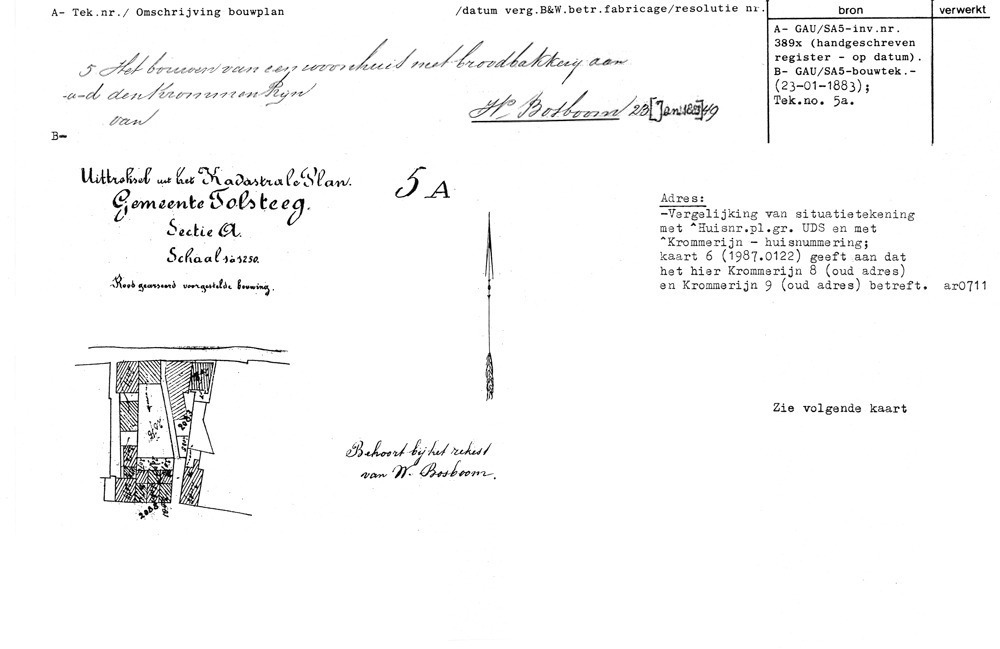 A- Tek.nr./ Omschrijving bouwplan /datum verg.B&W.betr.fabricage/resolutie nr.
bron
verwerkt
A- GAU/SA5-inv.nr.
389x (handgeschreven
register - op datum).
B- GAU/SA5-bouwtek.-
(23-01-1883);
Tek.no. 5a.
5 Het bouwen van een woonhuis met broodbakkerij aan
-a-d den Krommen Rijn
van Ws Bosboom 23 [Jan 1883] 49
B-
Uittreksel uit het Kadastrale Plan.
Gemeente Tolsteeg.
Sectie A.
Schaal 1 à 1250.
Rood gearseerd voorgestelde bouwing.
5 A
Adres:
-Vergelijking van situatietekening
met ^Huisnr.pl.gr. UDS en met
^Krommerijn - huisnummering;
kaart 6 (1987.0122) geeft aan dat
het hier Krommerijn 8 (oud adres)
en Krommerijn 9 (oud adres) betreft. ar0711
Zie volgende kaart
2087
Behoort bij het rekest
van W. Bosboom.